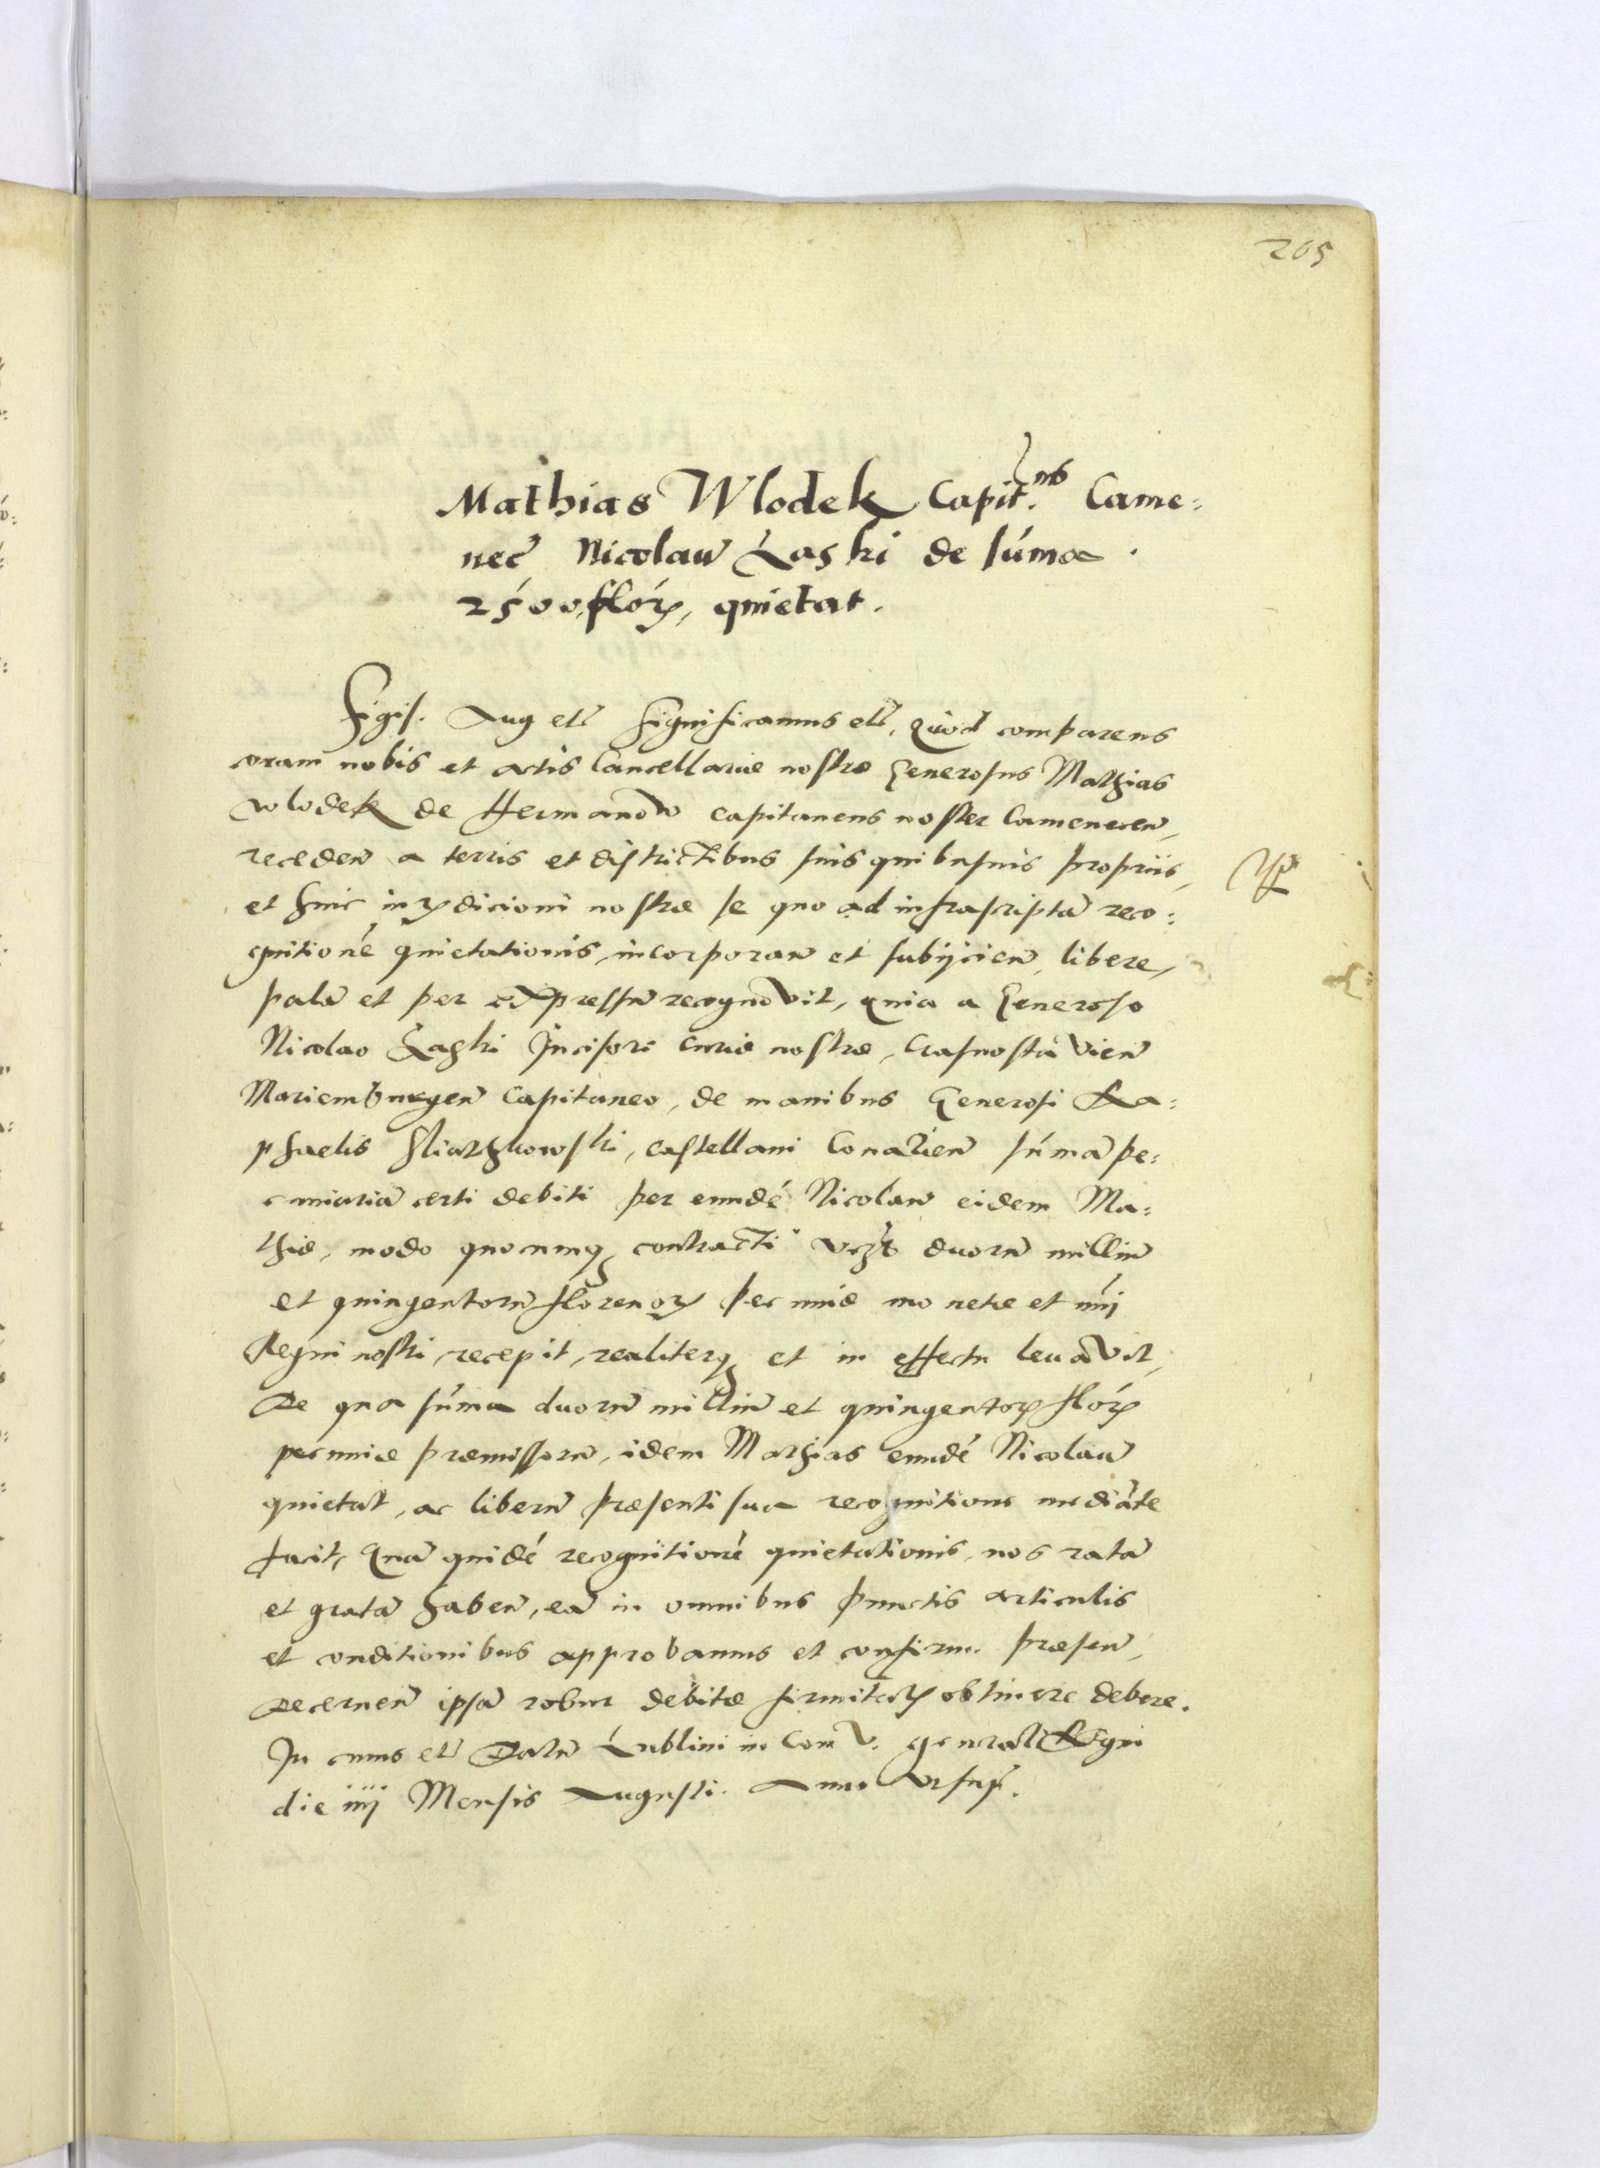 205
Mathias Wlodek Capit.ns Came:
nec̃ Nicolaũ Łaski de sũma
2500, florꝝ, quietat.
Sigis. Aug etc̃ significamus etc̃, Quod comparens
coram nobis et actis Cancellariæ nostræ Generosus Mathias
wlodek de Hermanow capitaneus noster Camenecen̄,
receden̄ a terris et districtibus suis quibusuis propriis,
et huic iurꝫdicioni nostræ se quo ad infrascriptã reco:
gnitionẽ quietationis, incorporan̄ et subijcien̄, libere,
palã et per expressũ recognovit, quia a Generoso
Nicolao Łaski Incisore curiæ nostræ, Crasnostãvien̄
Mariemburgen̄ Capitaneo, de manibus Generosi Ra:
phaelis Sliwzkowski, castellani Conarien̄ sũmã pe:
cuniariã certi debiti per eundẽ Nicolaũ eidem Ma:
thiæ, modo quocunqꝫ contracti vczt duorũ milliũ
et quingentorũ florenorꝝ pecuniæ monetæ et nũi
Regni nostri, recepit, realiterqꝫ et in effectu levavit,
De qua sũma duorũ milliũ et quingentorꝝ florꝝ
pecuniæ præmissorũ, idem Mathias eundẽ Nicolaũ
quietat, ac liberũ præsenti sua recognitione mediãte
facit, Quã quidẽ recognitionẽ quietationis, nos ratã
et gratã haben̄, eã in omnibus punctis articulis
et conditionibus approbamus et confirm. præsen̄,
Decernen̄ ipsã robur debitæ firmitatꝭ obtinere debere.
In cuius etc̃ Datũ Lublini in Conv. generali Regni
die iiij Mensis Augusti. Anno ut supr̃.